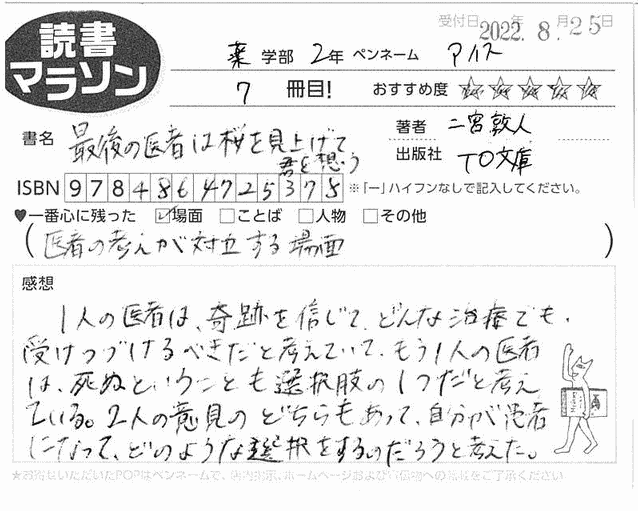 読書
マラソン
受付日 2022.年 8.月 25日
薬 学部 2年 ペンネーム アイス
7 冊目! おすすめ度 ☆☆☆☆☆
書名 最後の医者は桜を見上げて
君を想う
著者 二宮敦人
出版社 TO文庫
ISBN 9784864725378 ※「ー」ハイフンなしで記入してください。
♥一番心に残った ☑場面 □ことば □人物 □その他
(医者の考えが対立する場面)
感想
1人の医者は、奇跡を信じて、どんな治療でも、
受けつづけるべきだと考えていて、もう1人の医者
は、死ぬということも選択肢の1つだと考え
ている。2人の意見のどちらもあって、自分が患者
になって、どのような選択をするのだろうと考えた。
★お寄せいただいたPOPはペンネームで、店内掲示、ホームページおよび
への掲載をご了承ください